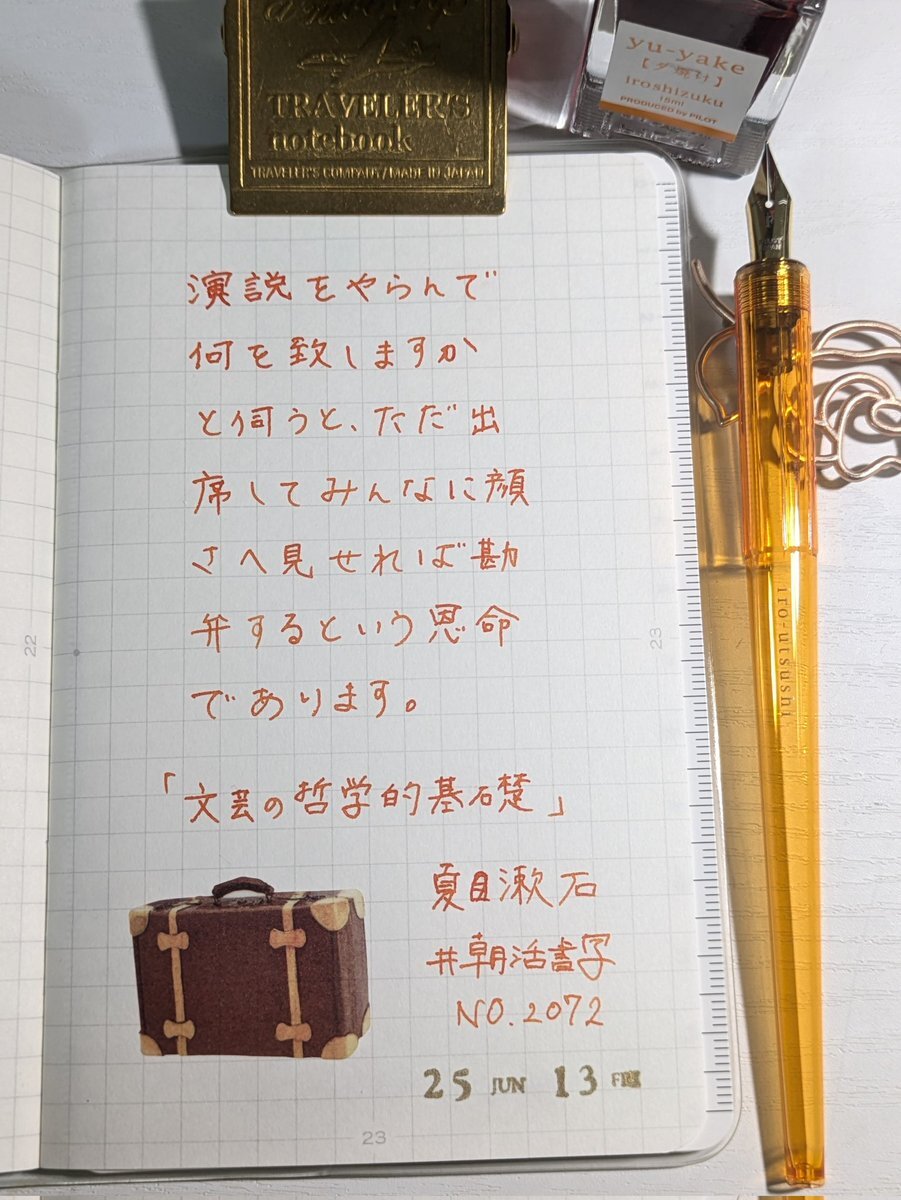 TRAVELER'S
notebook
TRAVELER'S COMPANY/MADE IN JAPAN
yu-yake
【夕焼け】
iroshizuku
15ml
PRODUCED by PILOT
演説をやらんで
何を致しますか
と伺うと、ただ出
席してみんなに顔
さへ見せれば勘
弁するという恩命
であります。
「文芸の哲学的基礎」
夏目漱石
#朝活書写
NO.2072
25 JUN 13 FRI
22
23
23
iro-utsushi